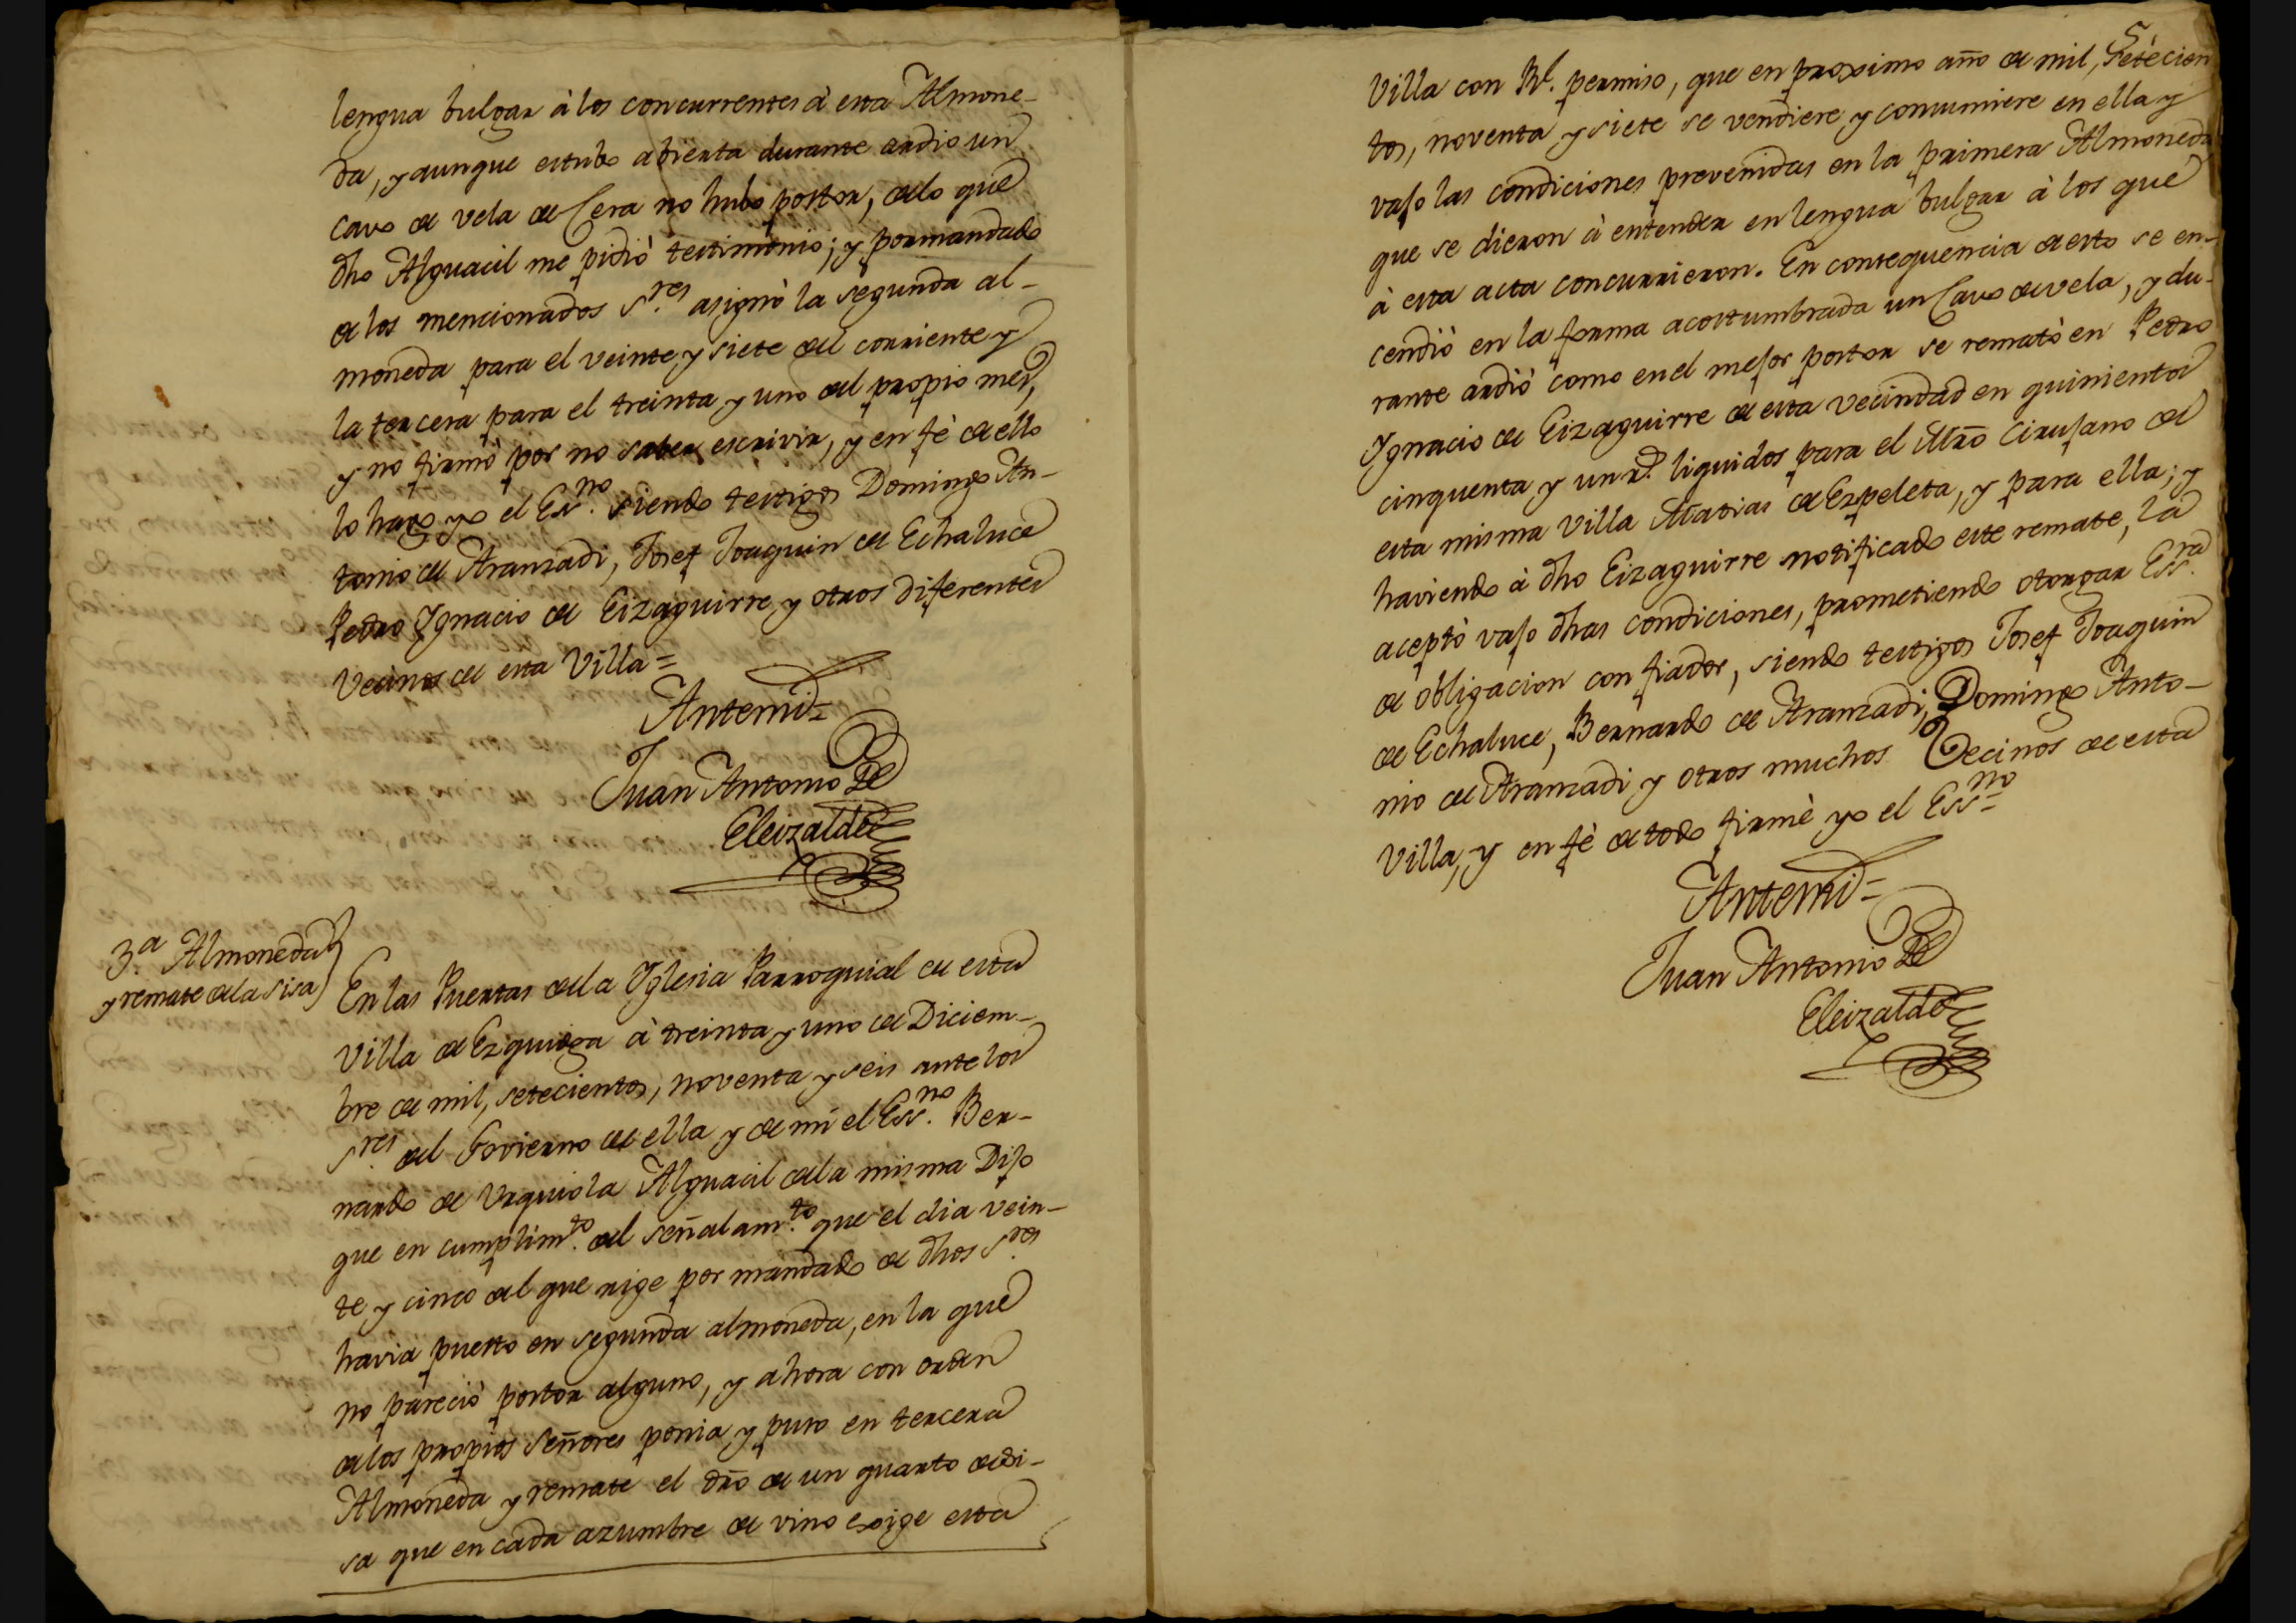 lengua bulgar à los concurrentes à esta Almone-
da, y aunque estubo abierta durante ardio un
cavo de vela de Cera no hubo postor, de lo que
dho Alguacil me pidiò testimonio; y por mandado
de los mencionados S.res asignò la segunda al-
moneda para el veinte y siete del corriente y
la tercera para el treinta y uno del propio mes,
y no firmò por no saber escrivir, y en fè de ello
lo hago yo el Ess.no siendo testigos Domingo An-
tonio de Aranzadi, Josef Joaquin de Echaluce
Pedro Ygnacio de Eizaguirre y otros diferentes
Vecinos de esta Villa =
Antemi =
Juan Antonio De
Eleizalde
3.a Almoneda
y remate de la sisa
En las Puertas de la Yglesia Parroquial de esta
Villa de Ezquioga à treinta y uno de Diciem-
bre de mil, setecientos, noventa y seis ante los
S.res del Govierno de ella y de mi el Ess.no Ber-
nardo de Urquiola Alguacil de la misma Dijo
que en cumplim.to del señalam.to que el dia vein-
te y cinco del que rige por mandado de dhos S.res
havia puesto en segunda almoneda, en la que
no pareciò postor alguno, y ahora con orden
de los propios Señores ponia y puso en tercera
Almoneda y remate el dro de un quarto de si-
sa que en cada azumbre de vino exige esta
5
Villa con Rl. permiso, que en proximo año de mil, Setècien
tos, noventa y siete se vendiere y consumiere en ella y
vajo las condiciones prevenidas en la primera Almoneda
que se dieron à entender en lengua bulgar à los que
à esta acta concurrieron. En contequencia de esto se en-
cendiò en la forma acostumbrada un Cavo de vela, y du-
rante ardiò como en el mejor postor se rematò en Pedro
Ygnacio de Eizaguirre de esta vecindad en quinientos
cinquenta y un r.s liquidos para el Mro Cirujano de
esta misma Villa Matias de Ezpeleta, y para ella; y
haviendo à dho Eizaguirre notificado este remate, la
aceptò vajo dhas condiciones, prometiendo otorgar Ess.ra
de obligacion con fiador, siendo testigos Josef Joaquin
de Echaluce, Bernardo de Aranzadi, Domingo Anto-
nio de Aranzadi y otros muchos Vecinos de esta
Villa, y en fè de todo firmè yo el Ess.no =
Antemi =
Juan Antonio De
Eleizalde